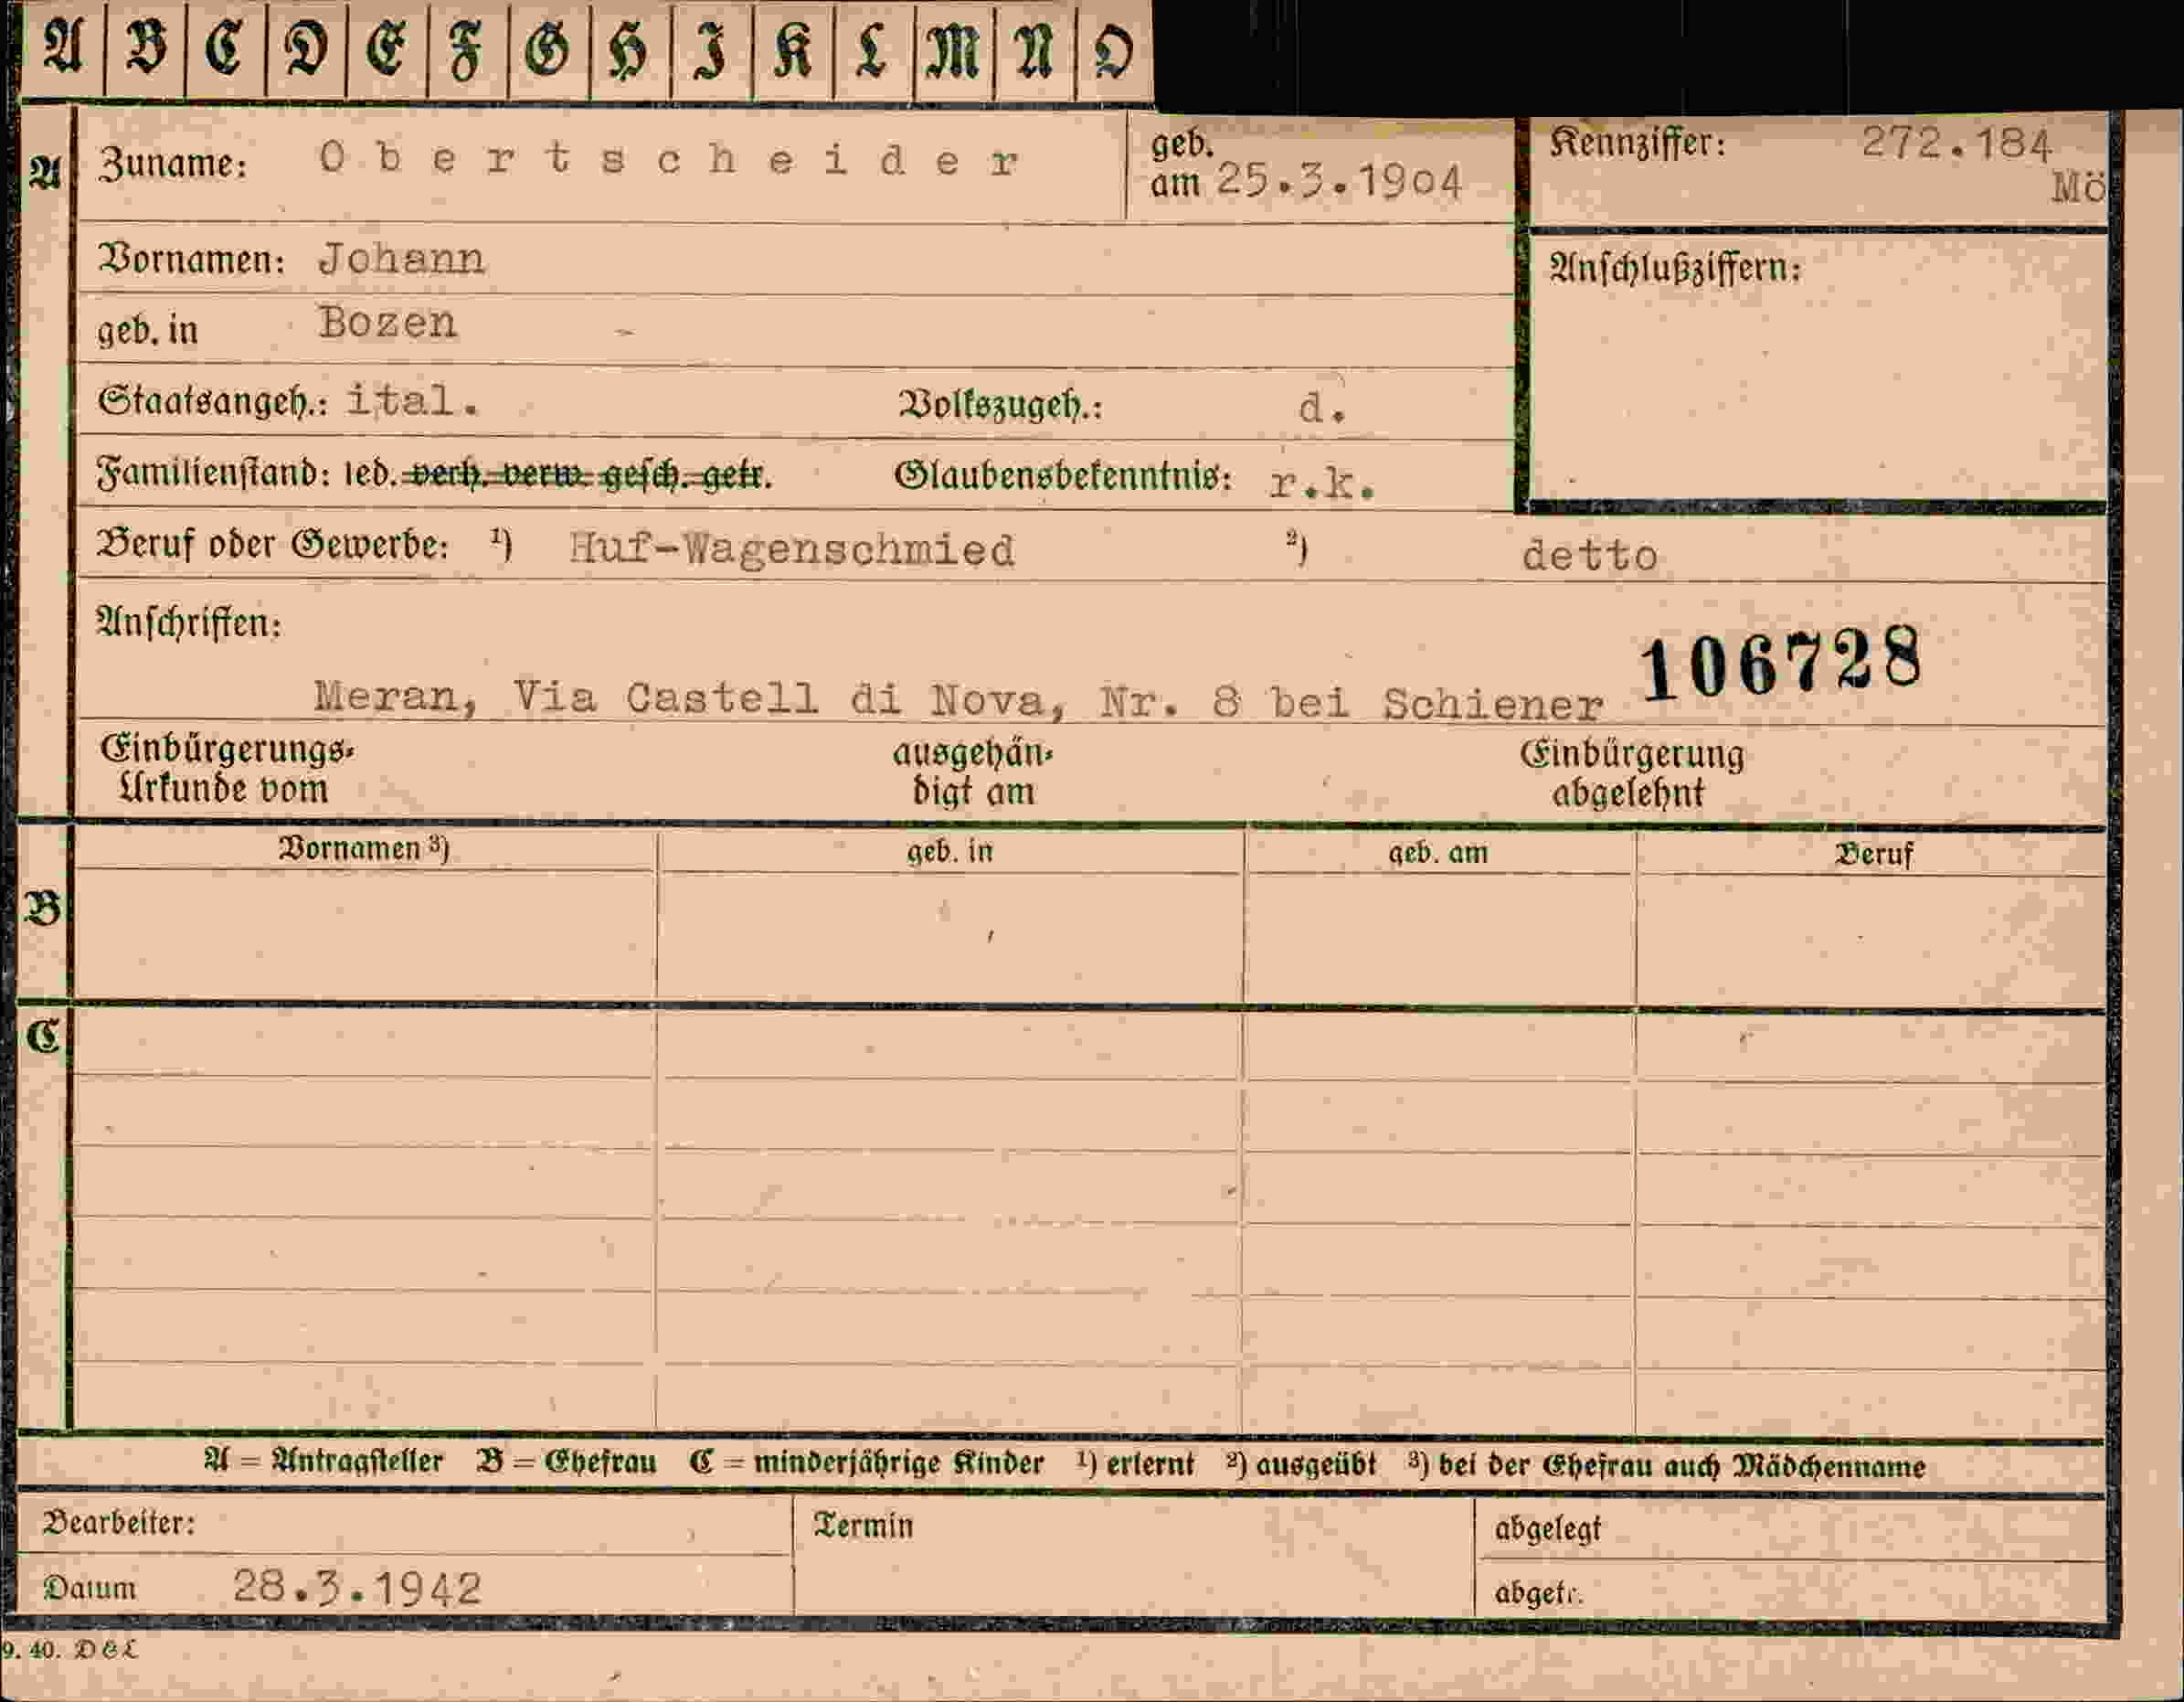 A B C D E F G H I K L M N O
A Zuname: Obertscheider geb. am 25.3.1904 Kennziffer: 272.184 Mö
Vornamen: Johann Anschlußziffern:
geb. in Bozen
Staatsangeh.: ital. Volkszugeh.: d.
Familienstand: led. verh. verw. gesch. getr. Glaubensbekenntnis: r.k.
Beruf oder Gewerbe: ¹) Huf-Wagenschmied ²) detto
Anschriften:
106728
Meran, Via Castell di Nova, Nr. 8 bei Schiener
Einbürgerungs- ausgehän- Einbürgerung
Urkunde vom digt am abgelehnt
Vornamen ³) geb. in geb. am Beruf
B
C
A = Antragsteller B = Ehefrau C = minderjährige Kinder ¹) erlernt ²) ausgeübt ³) bei der Ehefrau auch Mädchenname
Bearbeiter: Termin abgelegt
Datum 28.3.1942 abgetr.
9. 40.